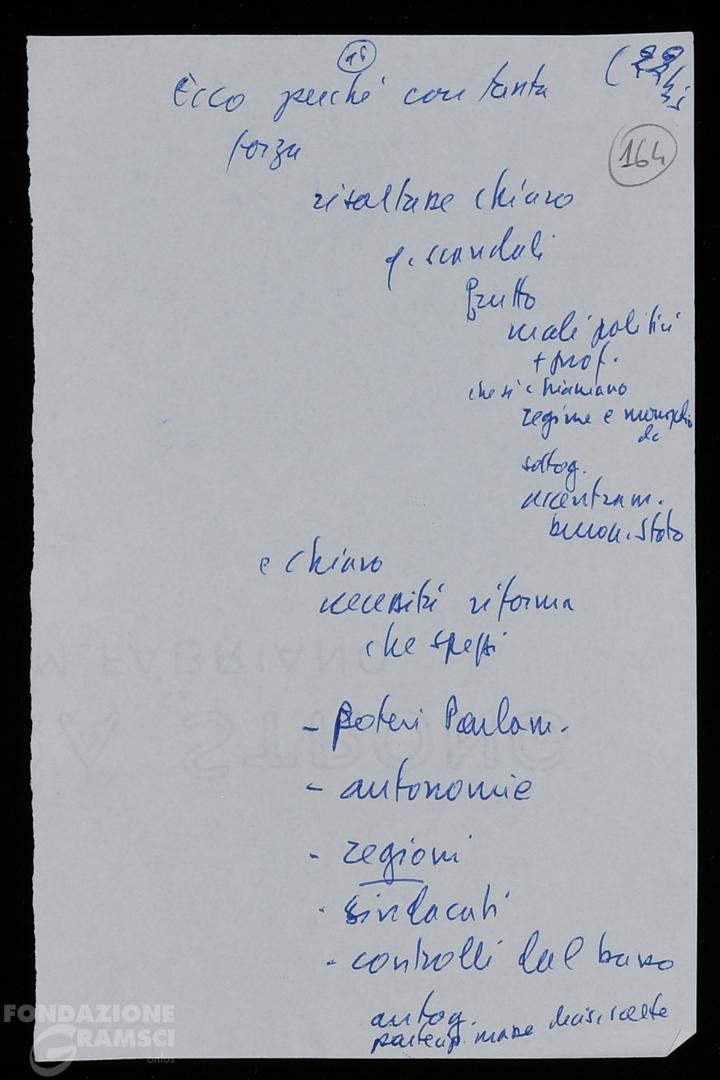 16
(22 bis
Ecco perché con tanta
forza
164
risultasse chiaro
q. scandali
frutto
mali politici
+ prof.
che si chiamano
regime e monopolio
dc
sottog.
accentram.
buroc. Stato
e chiaro
necessità riforma
che spezzi
- poteri Parlam.
- autonomie
- regioni
- sindacati
- controlli dal basso
autog.
partecip. masse decis. scelte
M. FABRIANO
A STRONG
FONDAZIONE
GRAMSCI
onlus